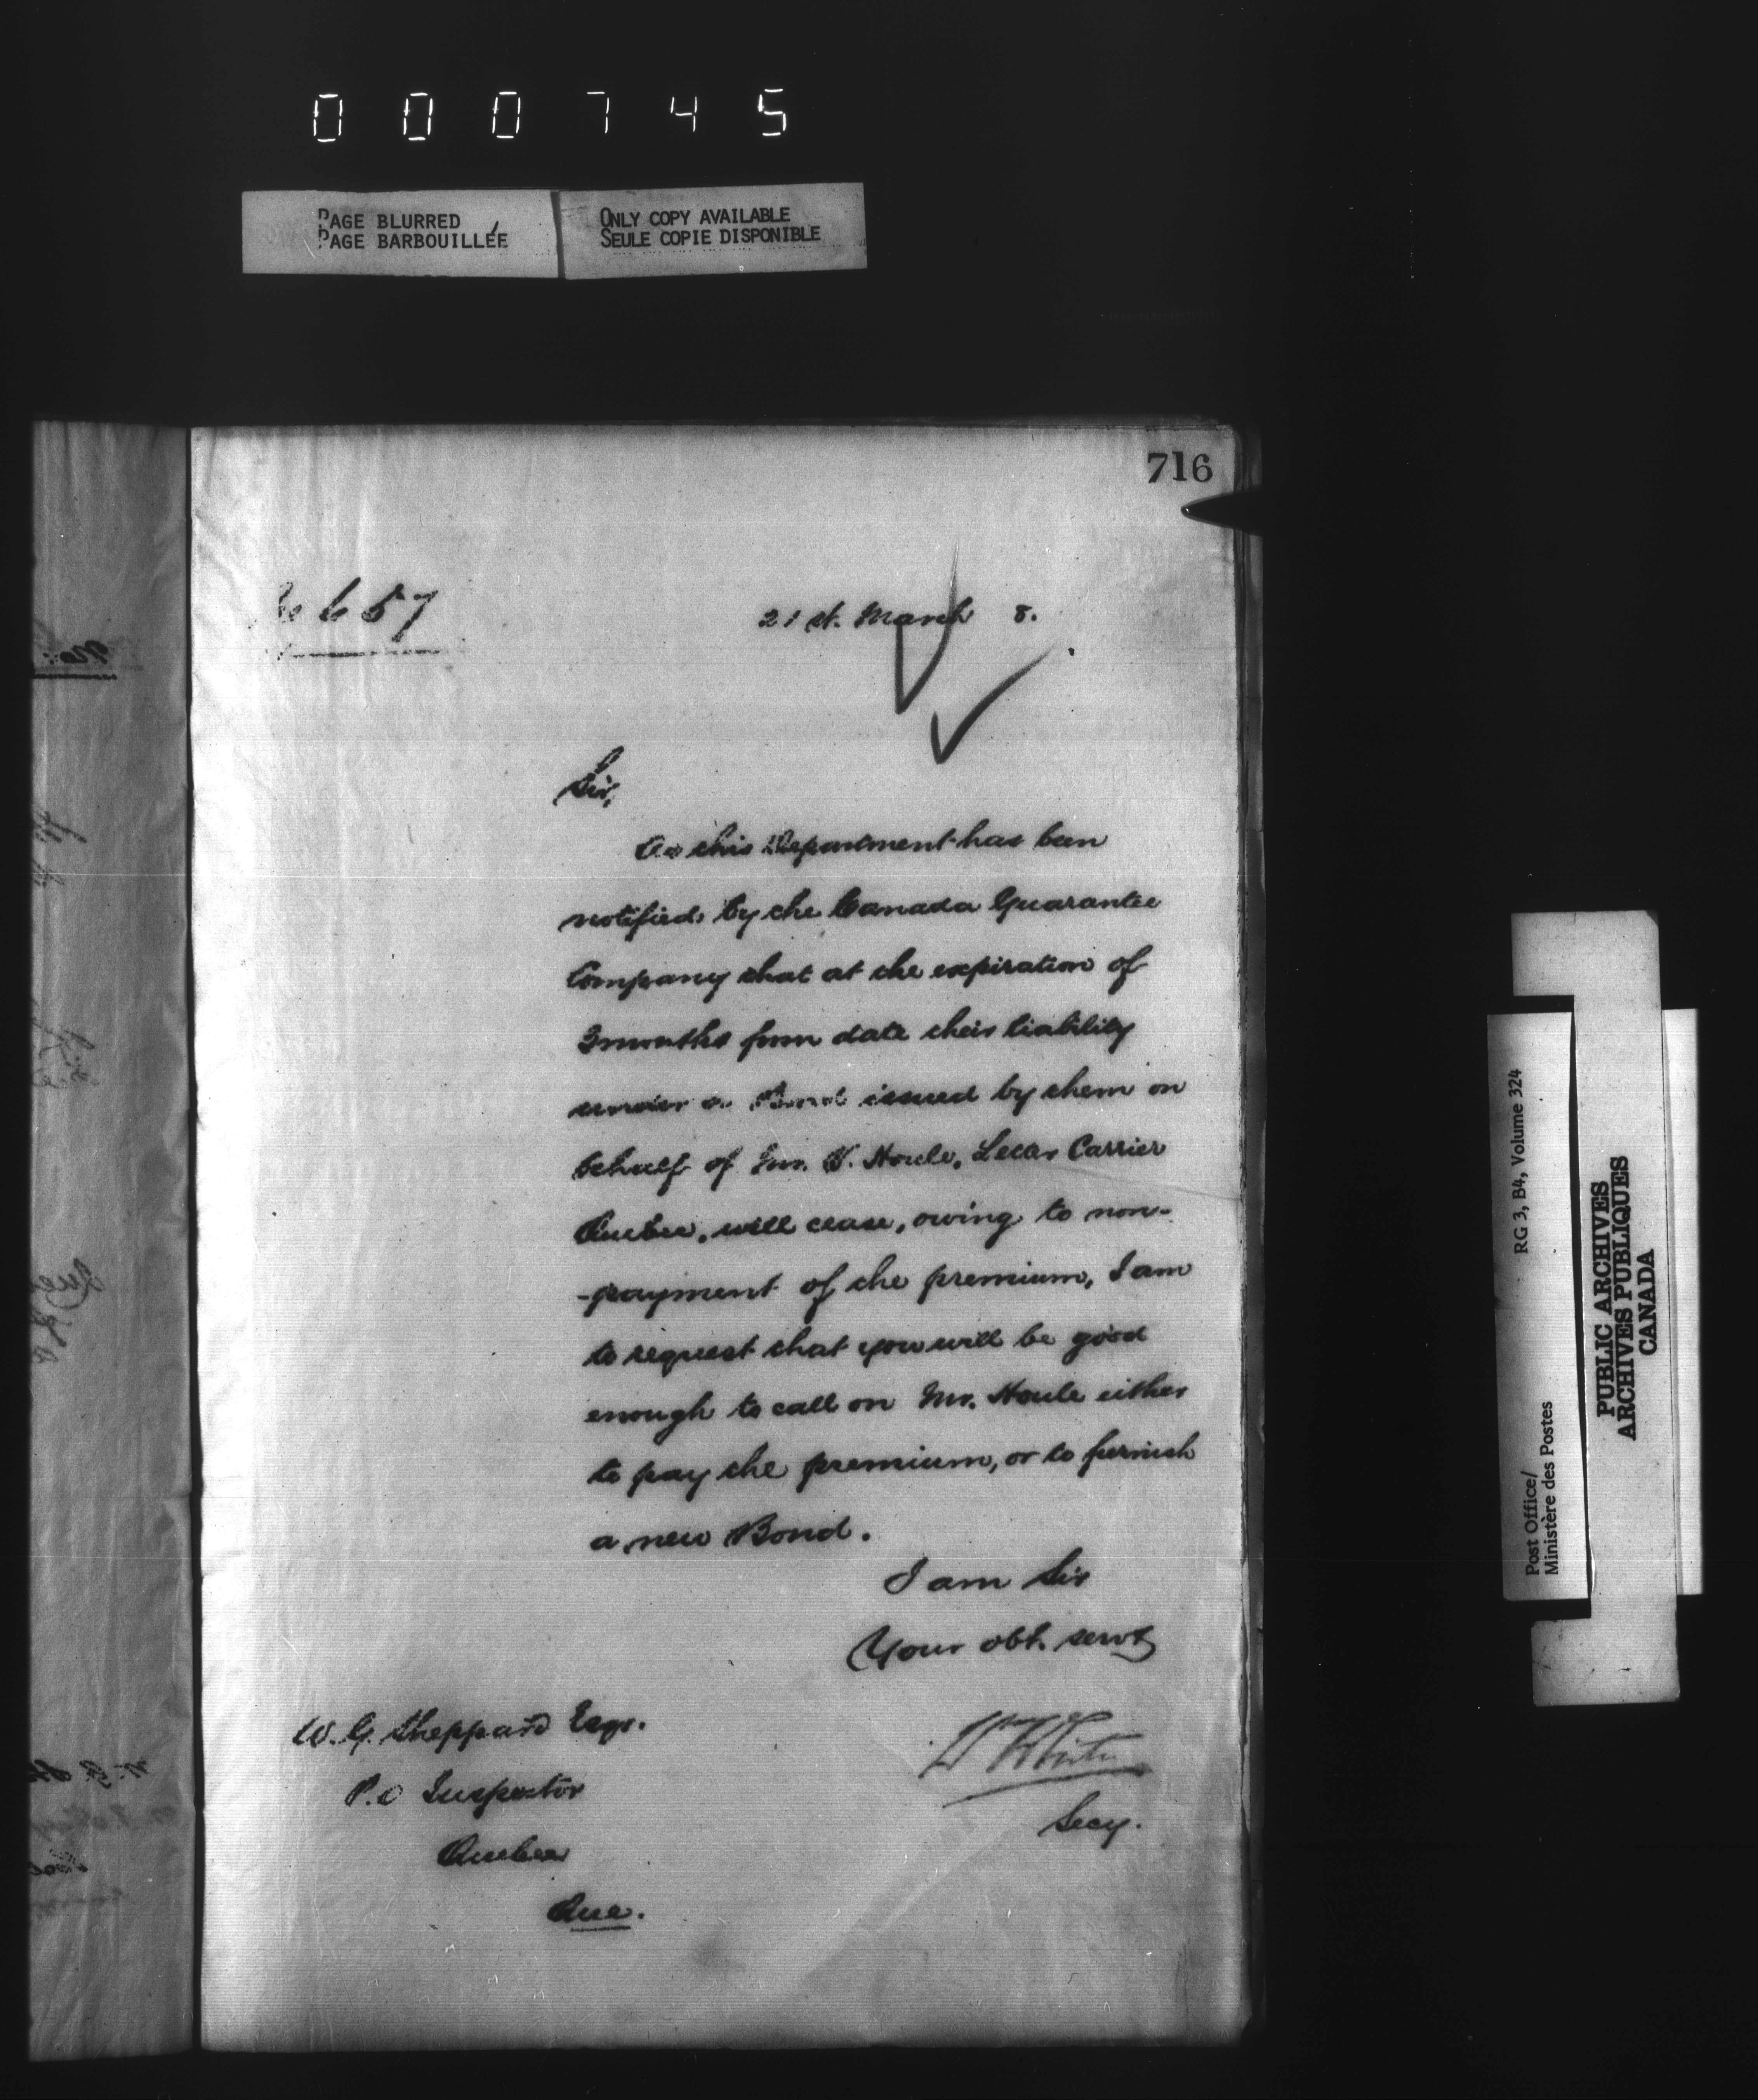 000745
PAGE BLURRED
PAGE BARBOUILLÉE
ONLY COPY AVAILABLE
SEULE COPIE DISPONIBLE
716
657
21st. March 8.
Sir,
As this Department has been
notified by the Canada Guarantee
Company that at the expiration of
3 months from date their liability
under a Bond issued by them on
behalf of Mr. V. Houle, Letter Carrier
Quebec, will cease, owing to non-
-payment of the premium, I am
to request that you will be good
enough to call on Mr. Houle either
to pay the premium, or to furnish
a new Bond.
I am Sir
Your obt. servt
W White
Secy.
W. G. Sheppard Esqr.
P.O Inspector
Quebec
Que.
Post Office/
Ministère des Postes
RG 3, B4, Volume 324
PUBLIC ARCHIVES
ARCHIVES PUBLIQUES
CANADA